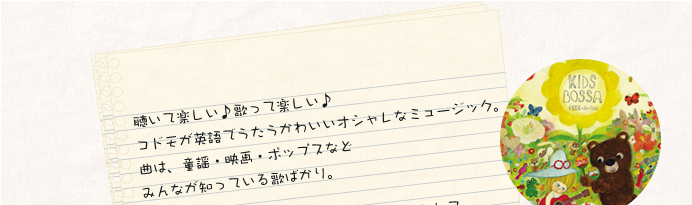 聴いて楽しい♪歌って楽しい♪
コドモが英語でうたうかわいいオシャレなミュージック。
曲は、童謡・映画・ポップスなど
みんなが知っている歌ばかり。
KIDS
BOSSA